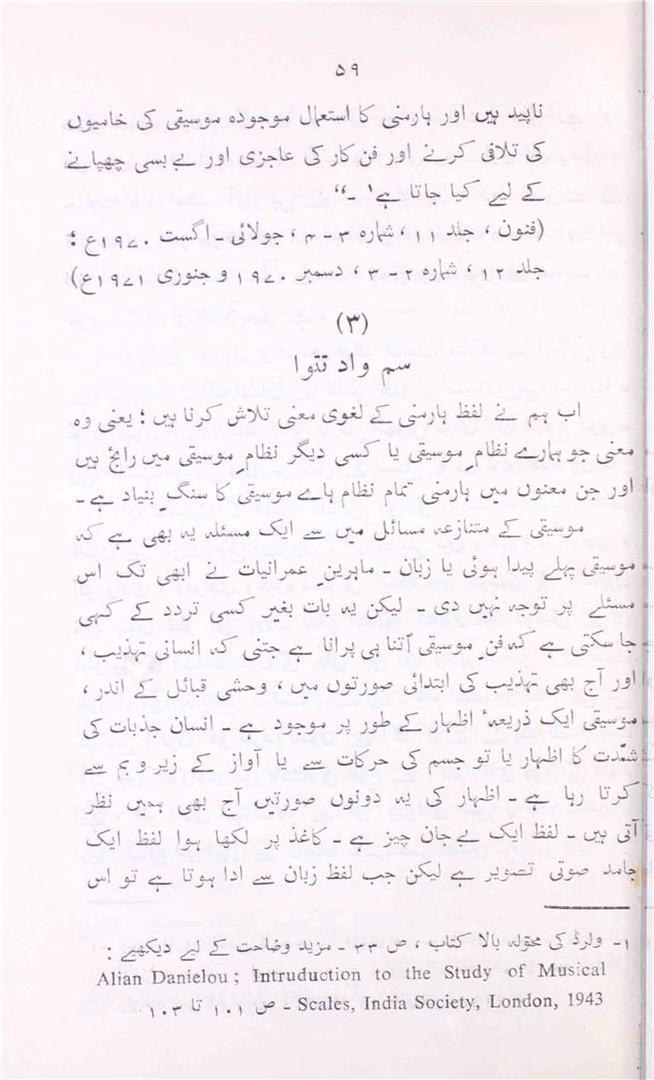 ۵۹
ناپید ہیں اور ہارمنی کا استعمال موجودہ موسیقی کی خامیوں
کی تلافی کرنے اور فن کار کی عاجزی اور بے بسی چھپانے
کے لیے کیا جاتا ہے۱ ۔“
(فنون ، جلد ۱۱ ، شمارہ ۳ - ۴ ، جولائی - اگست ۱۹۷۰ع ؛
جلد ۱۲ ، شمارہ ۲ - ۳ ، دسمبر ۱۹۷۰ و جنوری ۱۹۷۱ع)
(۳)
سم واد تتوا
اب ہم نے لفظ ہارمنی کے لغوی معنی تلاش کرنا ہیں ؛ یعنی وہ
معنی جو ہمارے نظامِ موسیقی یا کسی دیگر نظامِ موسیقی میں رائج ہیں
اور جن معنوں میں ہارمنی تمام نظام ہاے موسیقی کا سنگِ بنیاد ہے ۔
موسیقی کے متنازعہ مسائل میں سے ایک مسئلہ یہ بھی ہے کہ
موسیقی پہلے پیدا ہوئی یا زبان ۔ ماہرینِ عمرانیات نے ابھی تک اس
مسئلے پر توجہ نہیں دی ۔ لیکن یہ بات بغیر کسی تردد کے کہی
جا سکتی ہے کہ فنِ موسیقی اتنا ہی پرانا ہے جتنی کہ انسانی تہذیب ،
اور آج بھی تہذیب کی ابتدائی صورتوں میں ، وحشی قبائل کے اندر ،
موسیقی ایک ذریعۂ اظہار کے طور پر موجود ہے ۔ انسان جذبات کی
شدّت کا اظہار یا تو جسم کی حرکات سے یا آواز کے زیر و بم سے
کرتا رہا ہے ۔ اظہار کی یہ دونوں صورتیں آج بھی ہمیں نظر
آتی ہیں ۔ لفظ ایک بے جان چیز ہے ۔ کاغذ پر لکھا ہوا لفظ ایک
جامد صوتی تصویر ہے لیکن جب لفظ زبان سے ادا ہوتا ہے تو اس
۱- ولرڈ کی محوّلہ بالا کتاب ، ص ۳۳ ۔ مزید وضاحت کے لیے دیکھیے :
Alian Danielou ; Intruduction to the Study of Musical
Scales, India Society, London, 1943 - ص ۱۰۱ تا ۱۰۳